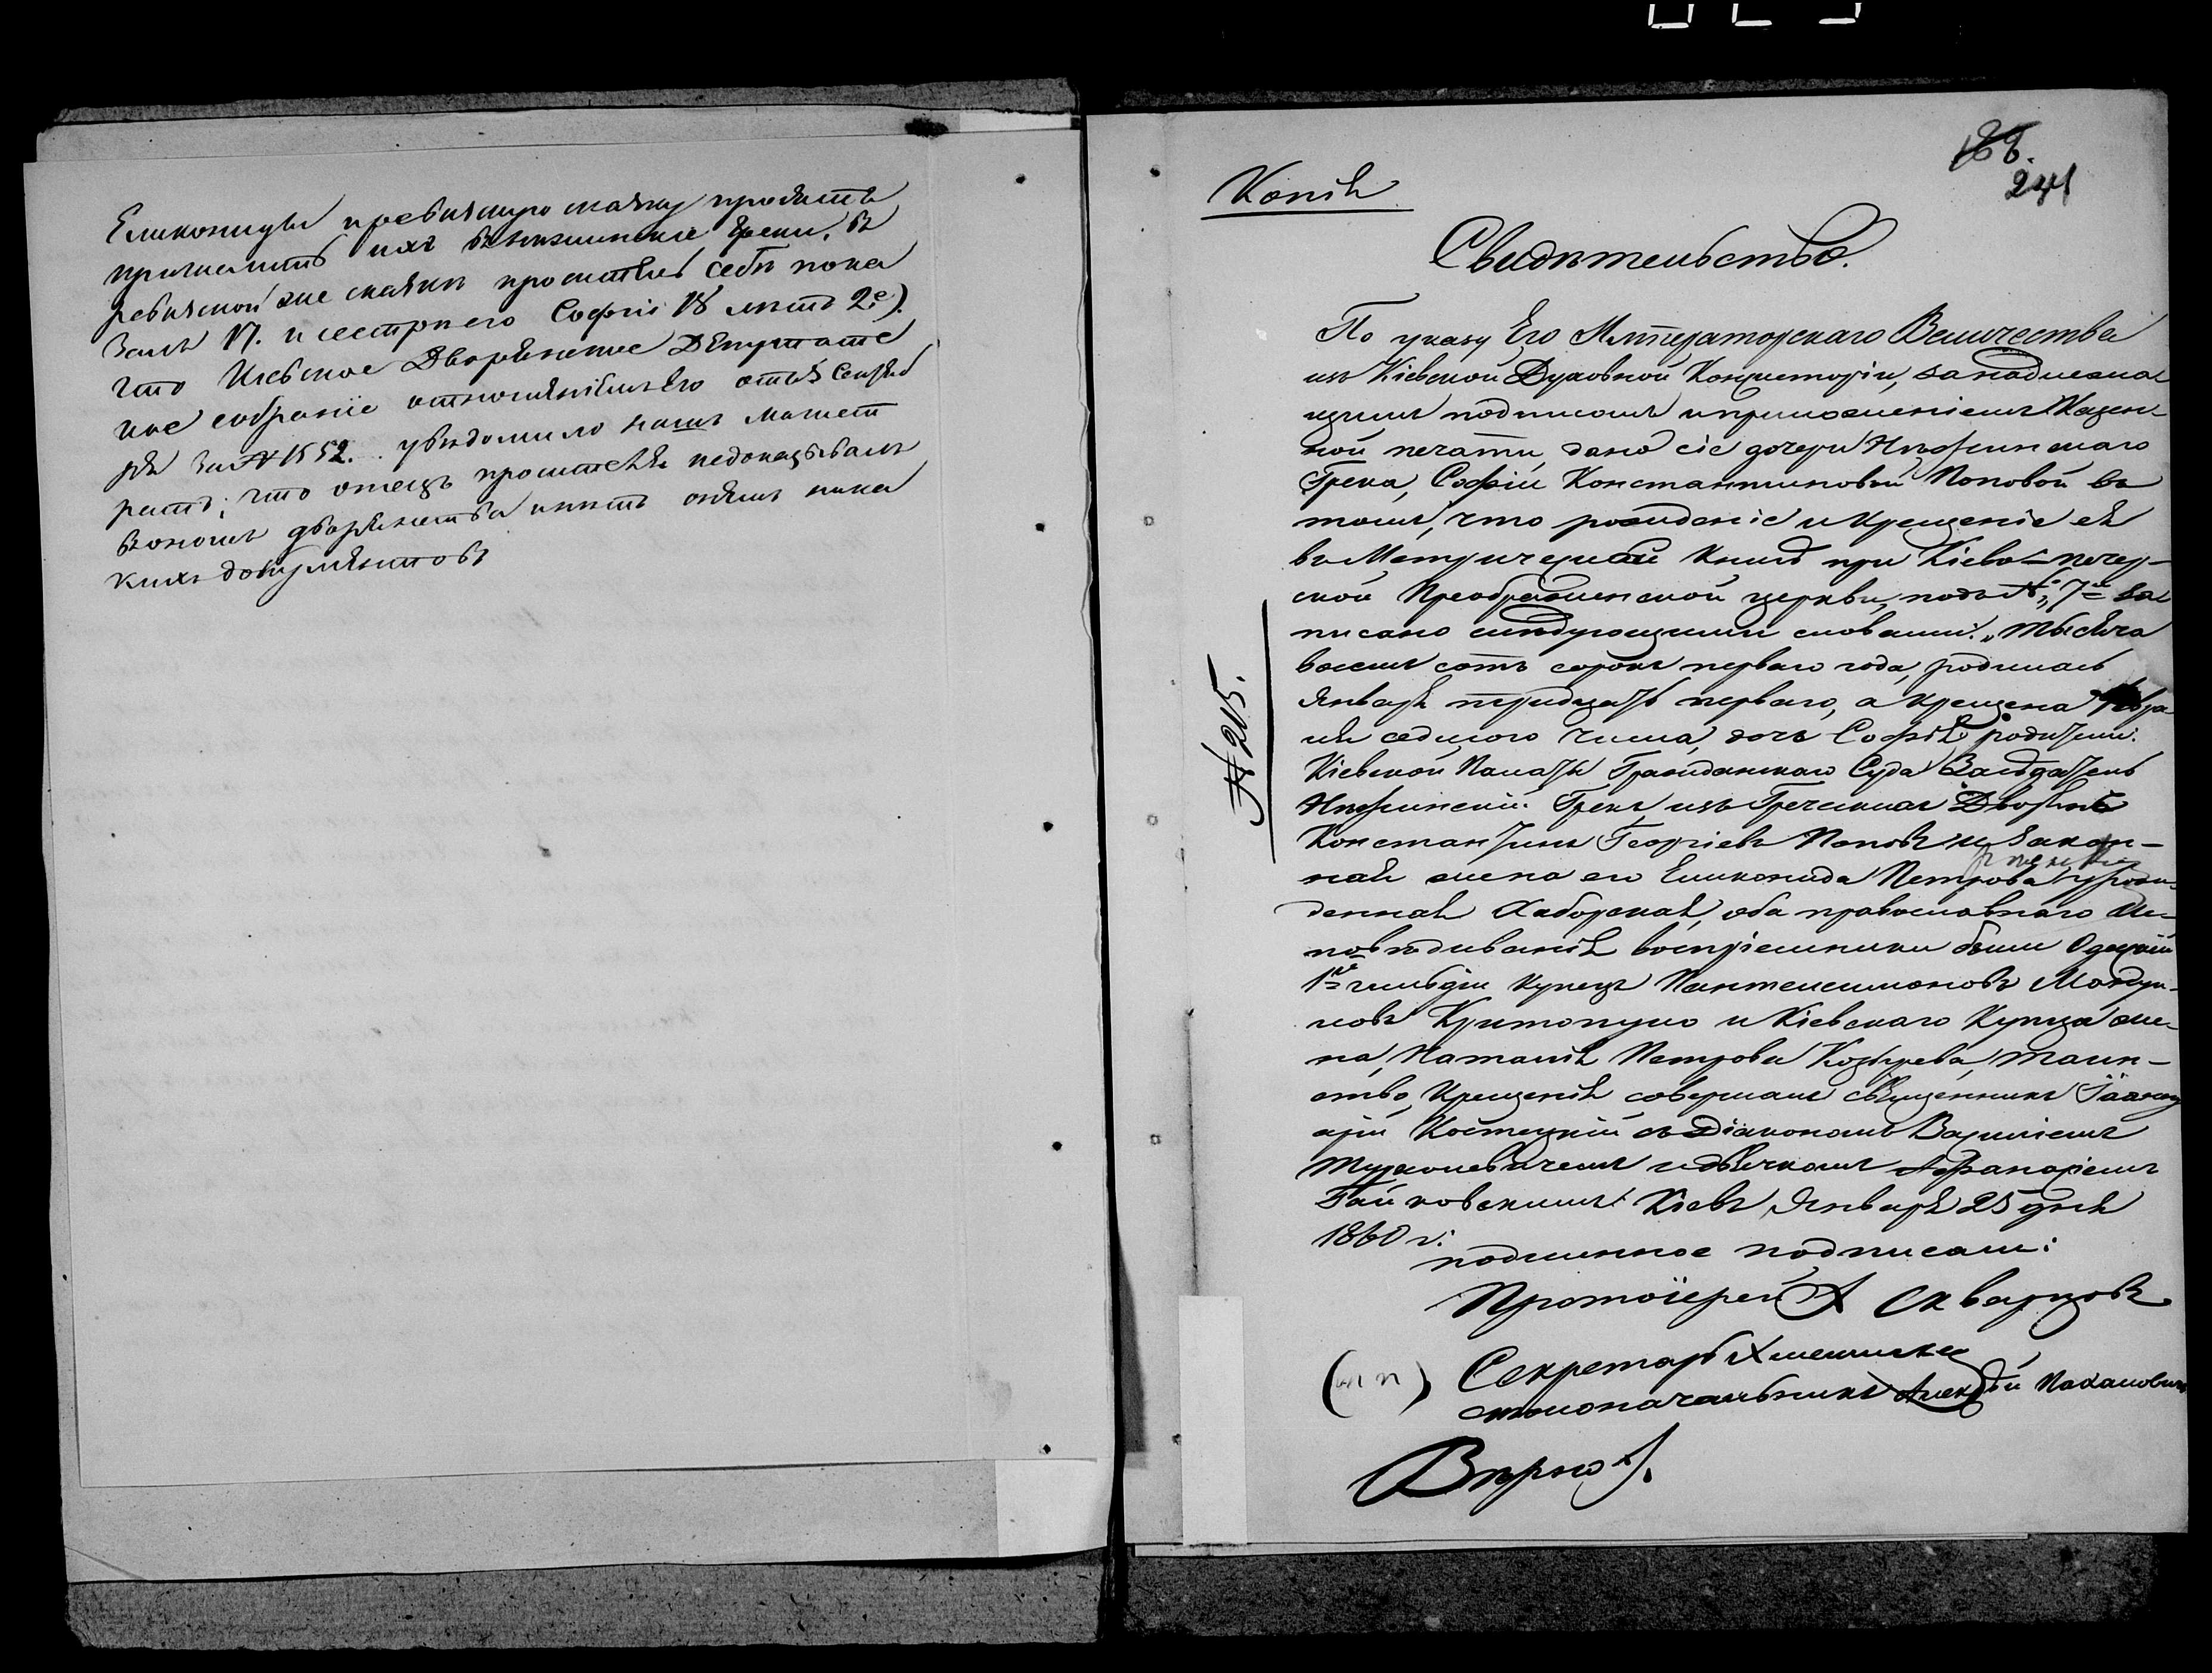 Еликониды и ревизскую сказку просятъ
причислить ихъ въ Нежинскіе Греки, въ
ревизской же сказкѣ проситель себѣ пока
залъ 17. и сестрѣ его Софіи 18 лѣтъ 2е).
что Кіевское Дворянское Депутатс
кое собраніе отношеніемъ его отъ 5 Сентяб
ря за № 1552. увѣдомило нашъ Магист
ратъ; что отецъ просителя недоказывалъ
въ ономъ дворянства и нѣтъ онѣмъ ника
кихъ документовъ
188.
241
Копія
Свидѣтельство.
По указу Его Императорскаго Величества
изъ Кіевской Духовной Консисторіи, за надлежа
щимъ подписомъ и приложеніемъ Казен-
ной печати, дано сіе дочери Нѣжинскаго
Грека, Софіи Константиновой Поповой въ
томъ, что рожденіе и крещеніе ея
въ Метрической книгѣ при Кіево-печер-
ской Преображенской церкви, подъ № 7м за
писано слѣдующими словами: „Тысяча
восемь сотъ сорокъ перваго года, родилась
Января тридцать перваго, а крещена Февра
ля седьмаго числа, дочь Софія, родители:
Кіевской Палаты Гражданскаго Суда Засѣдатель
Нѣжинскій Грекъ изъ Греческихъ Дворянъ
Константинъ Георгіевъ Поповъ и закон-
ная жена его Еликонида Петрова урож-
денная Хаборская, оба православнаго Ис-
повѣдыванія воспріемники были Одескій
1й гильдіи Купецъ Пантелеимоновъ
Критопуло и Кіевскаго Купца же-
на, Наталія Петрова Козырева, таин-
ство Крещенія совершалъ священникъ
Костецкій съ Діакономъ Василіемъ
и дьячкомъ Афанасіемъ
Гайковскимъ Кіевъ, Января 25 дня
1860 г.
подлинное подписали:
Протоіерей А Скварцовъ
(м п) Секретарь
столоначальникъ Алексѣй
Вѣрно
№ 215.